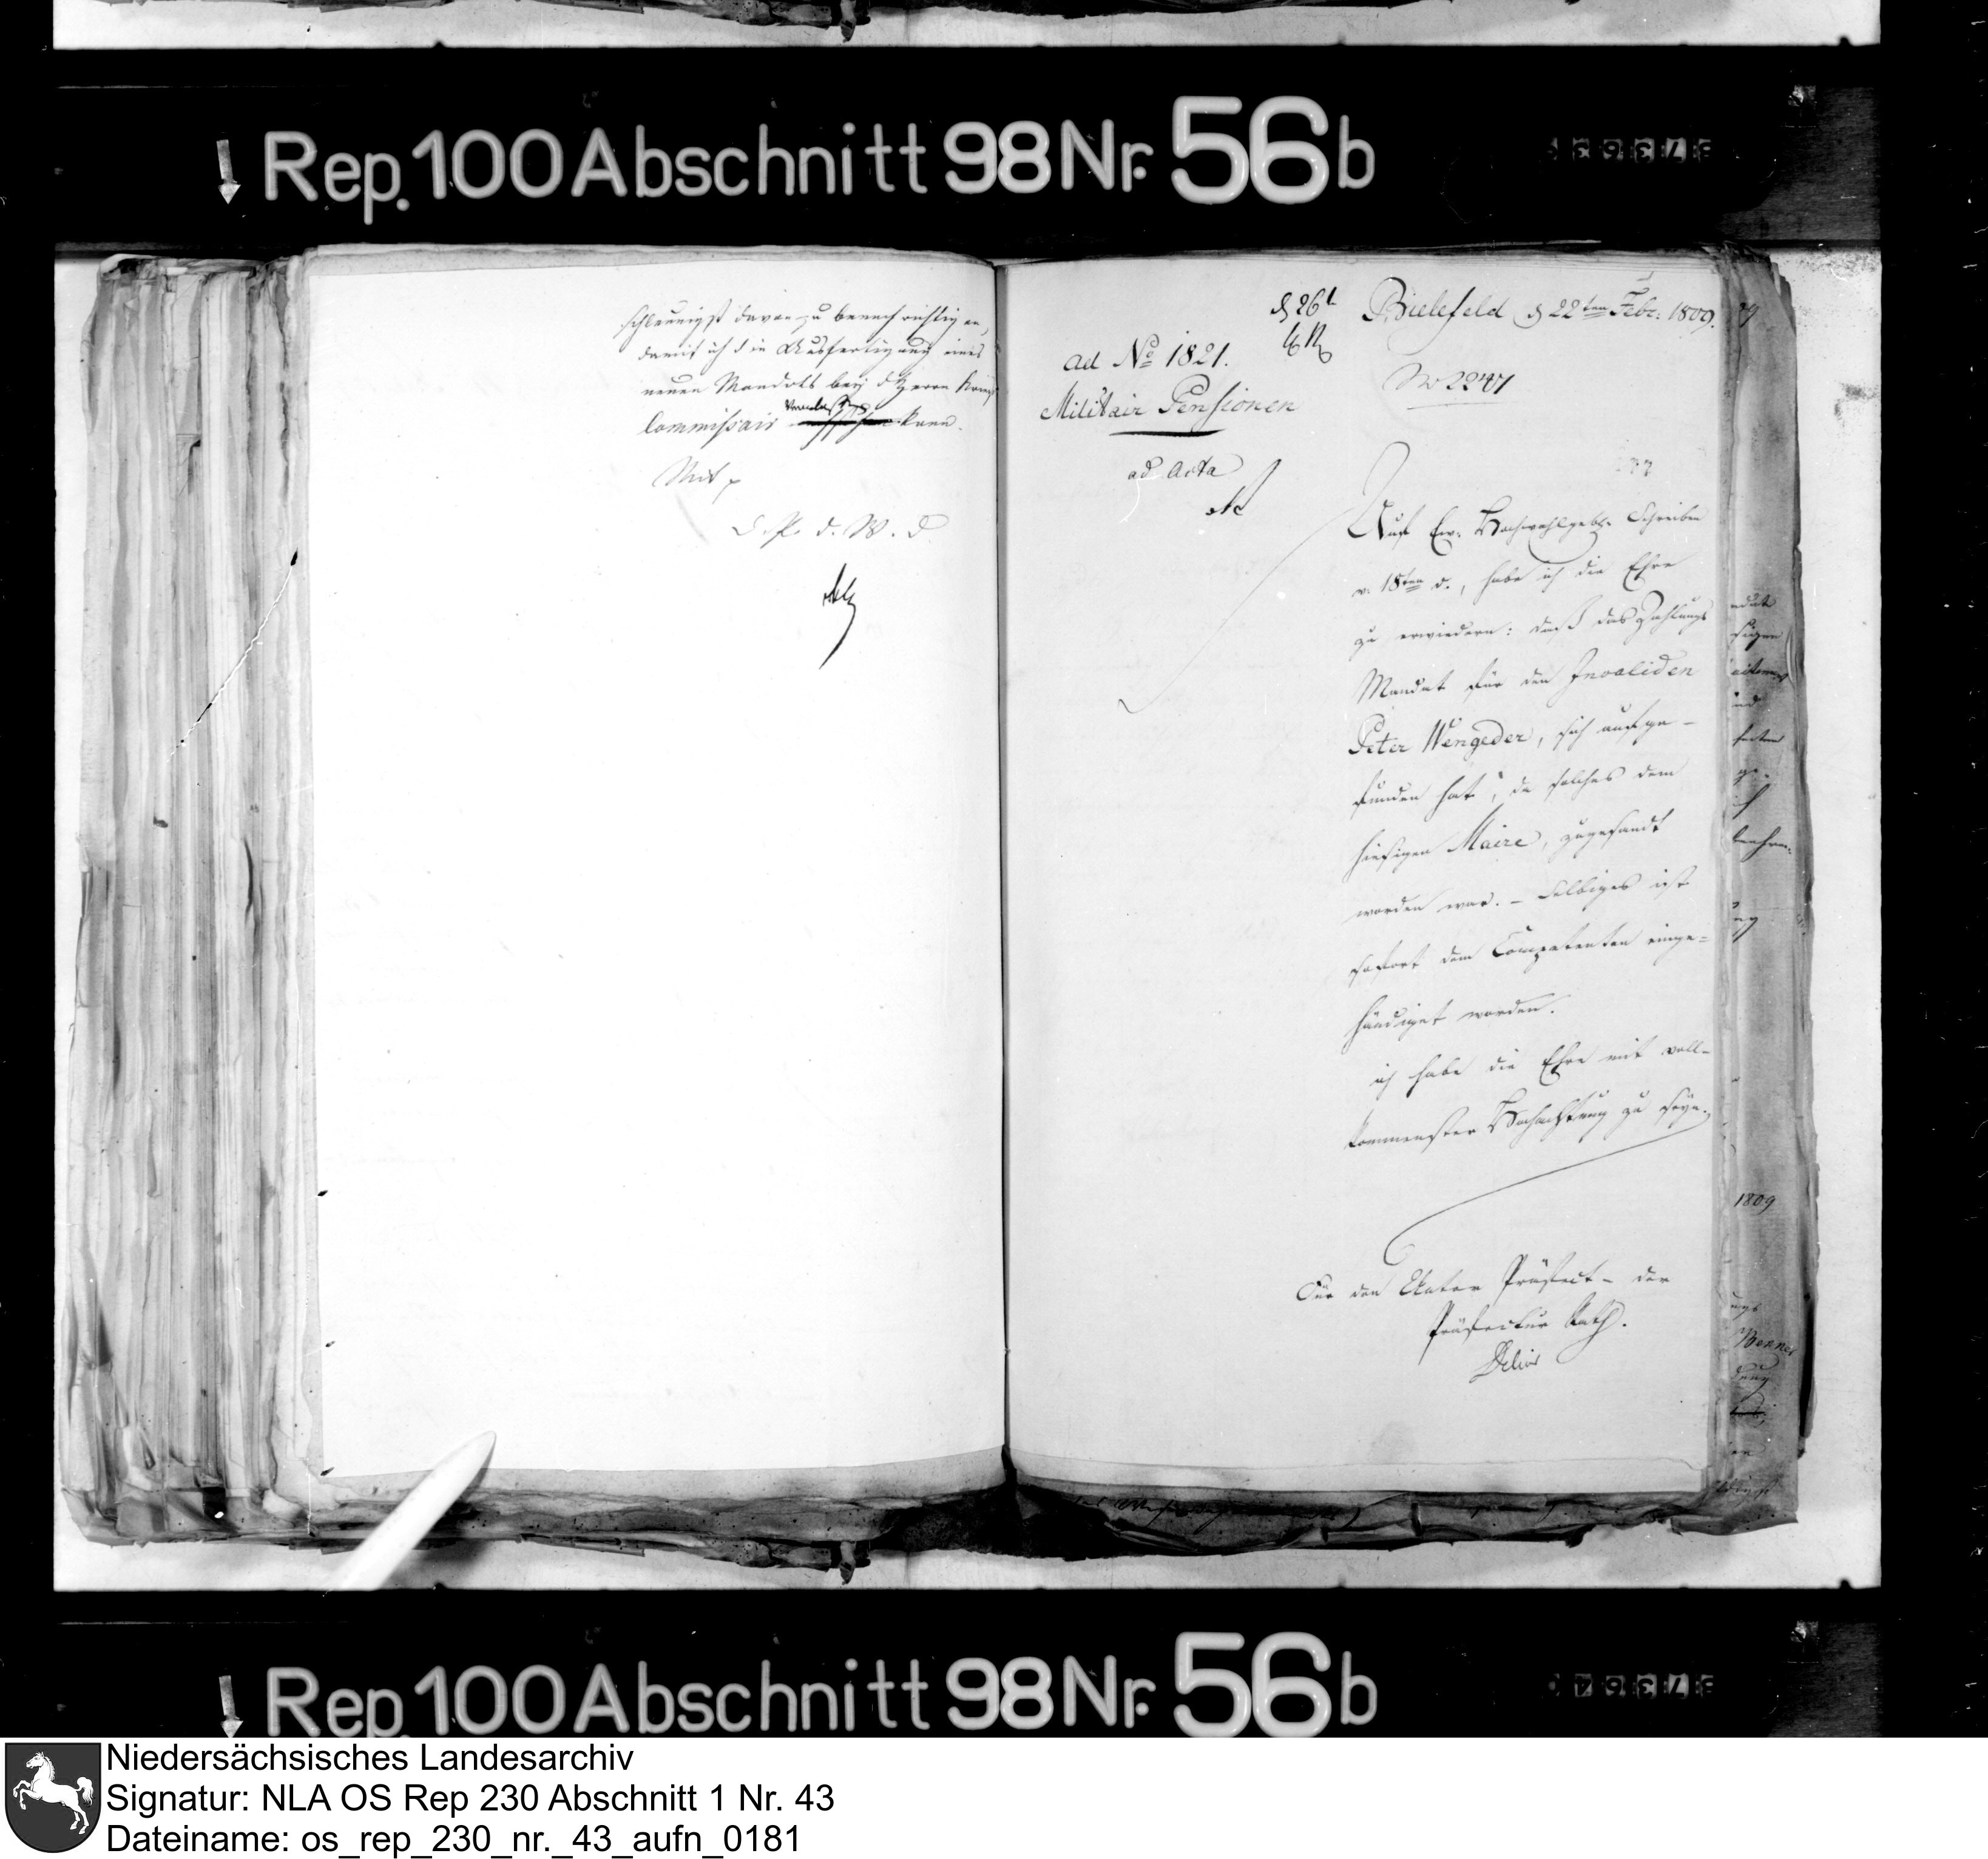 Rep. 100 Abschnitt 98 Nr. 56b
schleunigst davon zu benachrichtigen,
damit ich die Ausfertigung eines
neuen Mandats bey d Herrn Kriegs
Commissair veranlassen kann.
Mit p
D. P. d. W. D.
d 26t
Bielefeld d 22ten Febr: 1809.
ad No 1821.
Militair Pensionen
No 2247
ad Acta
Auf Ew. Hochwohlgeb. Schreiben
v. 18ten d., habe ich die Ehre
zu erwiedern: daß das Zahlungs
Mandat für den Invaliden
Peter Wengeder, sich aufge-
funden hat, da solches dem
hiesigen Maire, zugesandt
worden war. – Selbiges ist
sofort dem Competenten einge=
händiget worden.
ich habe die Ehre mit voll-
kommenster Hochachtung zu seyn.
Für den Unter Präfect – der
Präfectur Rath.
Delius
1809
Rep. 100 Abschnitt 98 Nr. 56b
Niedersächsisches Landesarchiv
Signatur: NLA OS Rep 230 Abschnitt 1 Nr. 43
Dateiname: os_rep_230_nr._43_aufn_0181